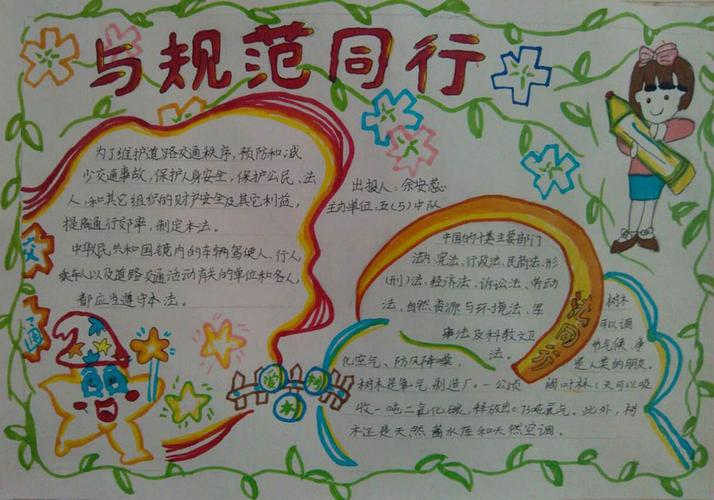 与规范同行
为了维护道路交通秩序，预防和减
少交通事故，保护人身安全，保护公民、法
人和其它组织的财产安全及其它利益，
提高通行效率，制定本法。
中华人民共和国境内的车辆驾驶人、行人，
乘车人以及道路交通活动有关的单位和各人，
都应当遵守本法。
出报人：余安蕊
主办单位：五(5)中队
中国的十大主要部门
法：宪法、行政法、民商法、形
(刑)法、经济法、诉讼法、劳动
法、自然资源与环境法、军
事法及科教文卫
法。
法同行
树木
可以调
节气候、净
化空气、防风降噪，
是人类的朋友。
树木是氧气制造厂。一公顷
阔叶林1天可以吸
收一吨二氧化碳，释放出0.73吨氧气。此外，树
木还是天然蓄水库和天然空调。
爱
木
树
交